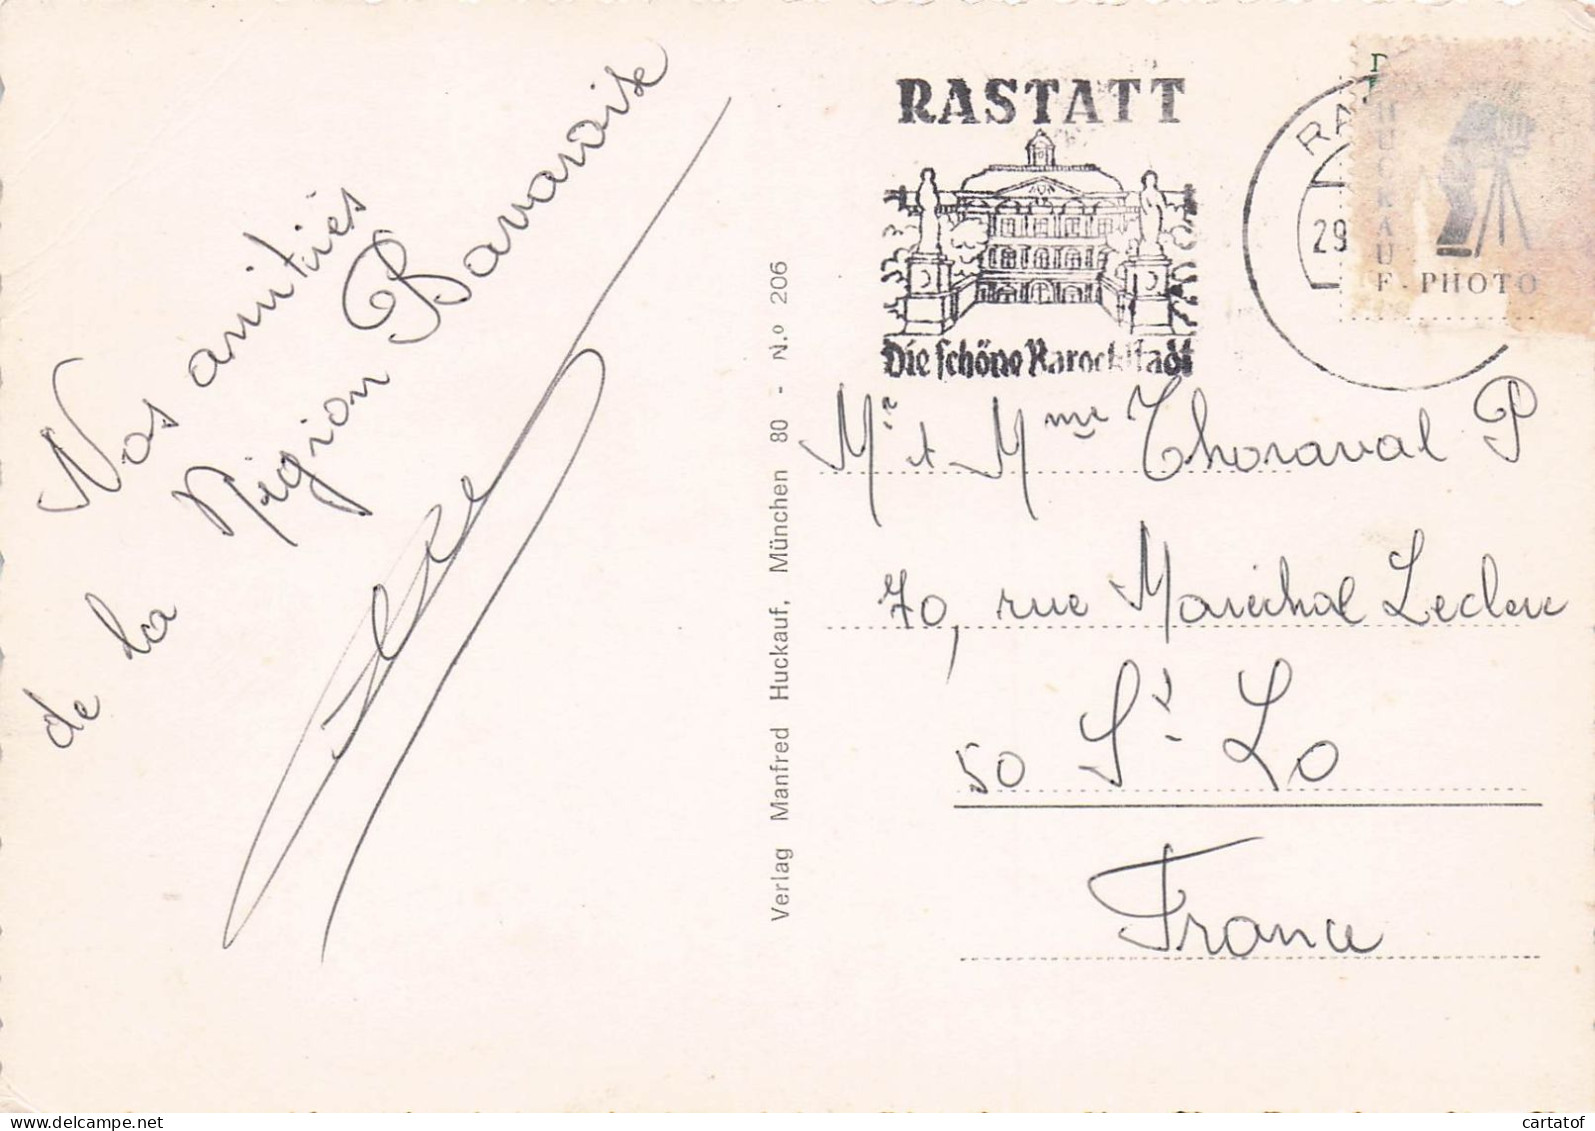 Nos amitiés
de la Région Bavaroise
Verlag Manfred Huckauf, München 80 - N.º 206
RASTATT
Die schöne Barockstadt
RA
29
HUCKAUF - PHOTO
Mr et Mme Thoraval P
70, rue Maréchal Leclerc
50 St Lo
France
cartatof